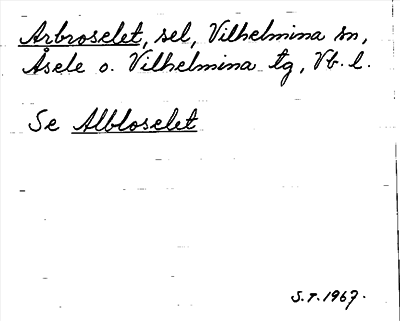 Arbroselet, sel, Vilhelmina sn,
Åsele o. Vilhelmina tg, Vb. l.
Se Albloselet
S.T. 1967.